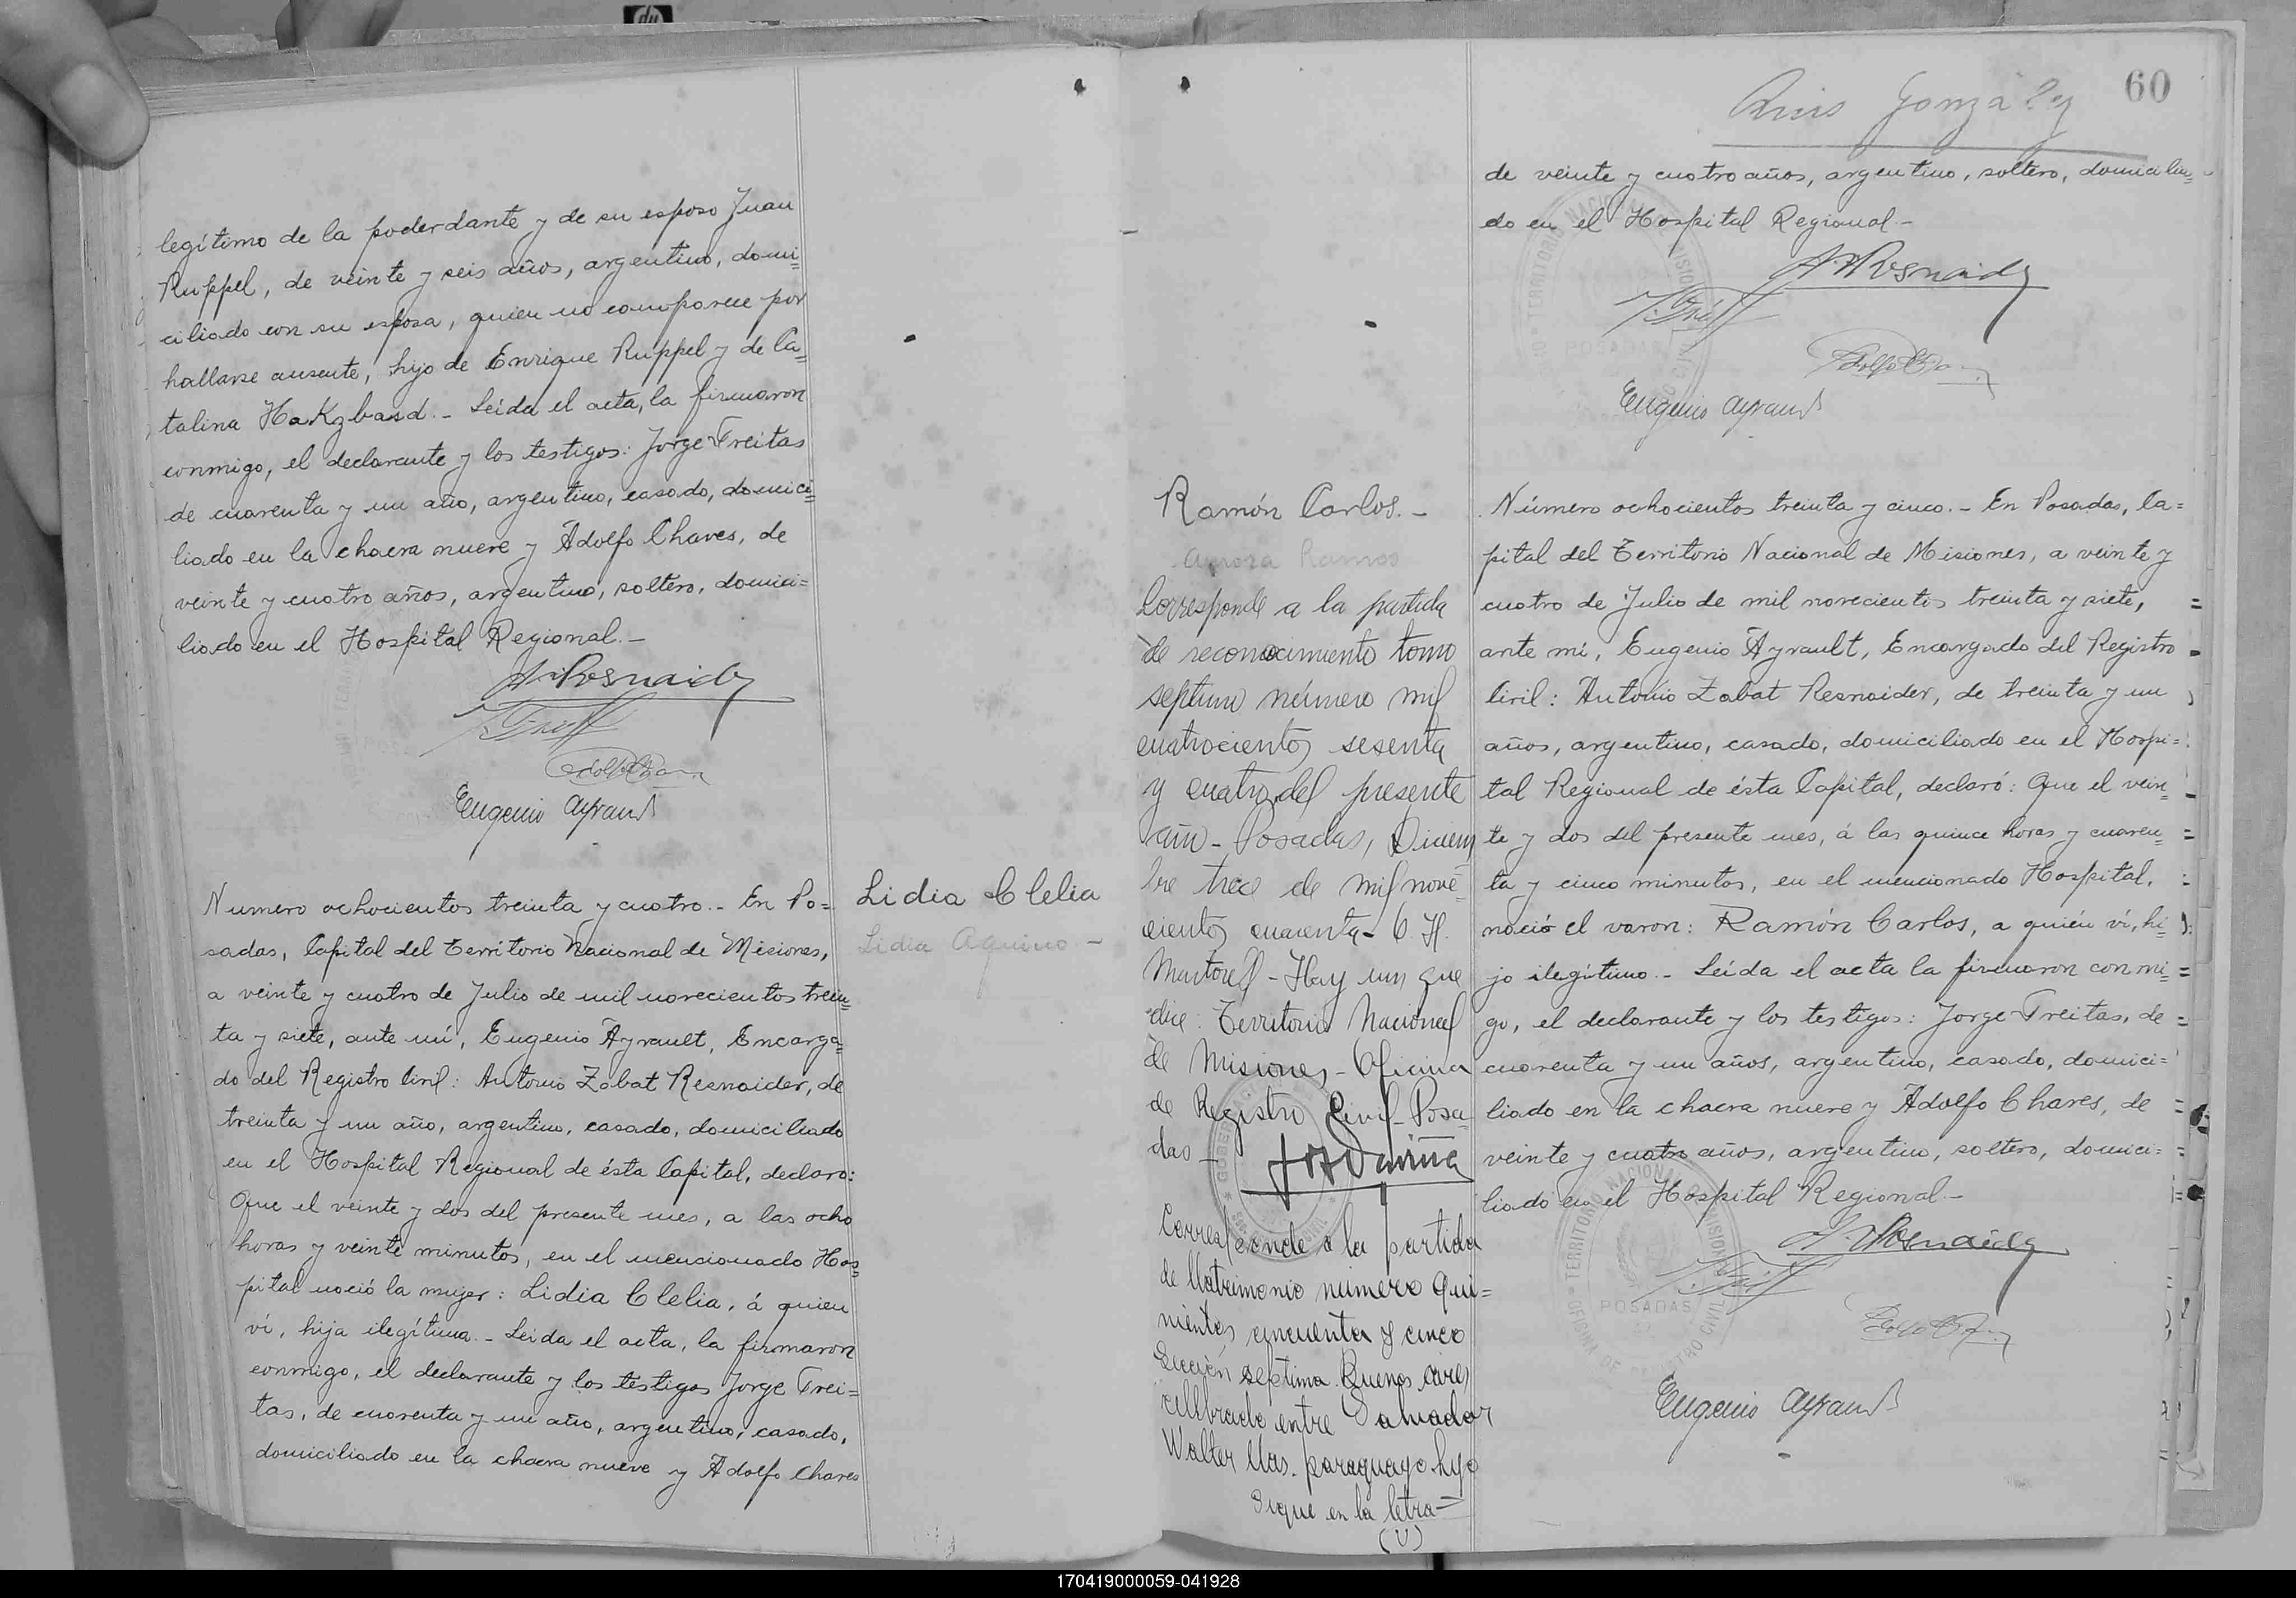 legítimo de la poderdante y de su esposo Juan
Ruppel, de veinte y seis años, argentino, domi=
ciliado con su esposa, quien no comparece por
hallarse ausente, hijo de Enrique Ruppel y de Ca=
talina Hakzbard.- Leída el acta, la firmaron
conmigo, el declarante y los testigos: Jorge Freitas
de cuarenta y un año, argentino, casado, domici=
liado en la chacra nueve y Adolfo Chaves, de
veinte y cuatro años, argentino, soltero, domici=
liado en el Hospital Regional.-
Eugenio Ayrault
Numero ochocientos treinta y cuatro.- En Po=
sadas, Capital del Territorio Nacional de Misiones,
a veinte y cuatro de Julio de mil novecientos trein=
ta y siete, ante mí, Eugenio Ayrault, Encarga=
do del Registro Civil: Antonio Zabat Resnaider, de
treinta y un año, argentino, casado, domiciliado
en el Hospital Regional de ésta Capital, declaro:
Que el veinte y dos del presente mes, a las ocho
horas y veinte minutos, en el mencionado Hos=
pital nació la mujer: Lidia Clelia, á quien
ví, hija ilegítima.- Leida el acta, la firmaron
conmigo, el declarante y los testigos Jorge Frei=
tas, de cuarenta y un año, argentino, casado,
domiciliado en la chacra nueve y Adolfo Chaves
Lidia Clelia
Lidia Aquino -
60
Luis González
de veinte y cuatro años, argentino, soltero, domicilia=
do en el Hospital Regional -
Eugenio Ayrault
Ramón Carlos.-
Aurora Ramos
Corresponde a la partida
de reconocimiento tomo
septimo número mil
cuatrocientos sesenta
y cuatro del presente
año - Posadas, Diciem
bre trece de mil nove=
cientos cuarenta - C. H.
Martorell - Hay un que
dice: Territorio Nacional
de Misiones - Oficina
de Registro Civil - Posa
das -
Corresponde a la partida
de Matrimonio número qui=
nientos cincuenta y cinco
Sección septima Buenos Aires
celebrado entre Salvador
Walter Mas. paraguayo hijo
Sigue en la letra=
(U)
Número ochocientos treinta y cinco.- En Posadas, Ca=
pital del Territorio Nacional de Misiones, a veinte y
cuatro de Julio de mil novecientos treinta y siete,
ante mí, Eugenio Ayrault, Encargado del Registro
Civil: Antonio Zabat Resnaider, de treinta y un
años, argentino, casado, domiciliado en el Hospi=
tal Regional de ésta Capital, declaró: Que el vein=
te y dos del presente mes, á las quince horas y cuaren=
ta y cinco minutos, en el mencionado Hospital,
nació el varon: Ramón Carlos, a quién ví, hi=
jo ilegítimo.- Leída el acta la firmaron con mi=
go, el declarante y los testigos: Jorge Freitas, de
cuarenta y un años, argentino, casado, domici=
liado en la chacra nueve y Adolfo Chaves, de
veinte y cuatro años, argentino, soltero, domici=
liado en el Hospital Regional.-
Eugenio Ayrault
170419000059-041928